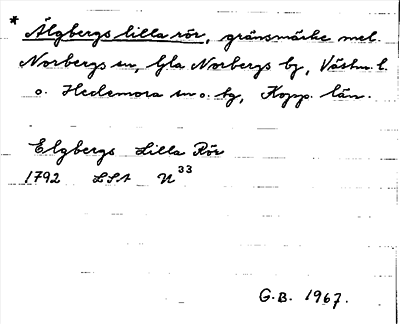 * Älgbergs lilla rör, gränsmärke mel.
Norbergs sn, Gla Norbergs by, Västm. l.
o. Hedemora sn o. tg, Kopp. län.
Elgbergs Lilla Rör
1792 LSA U33
G.B. 1967.